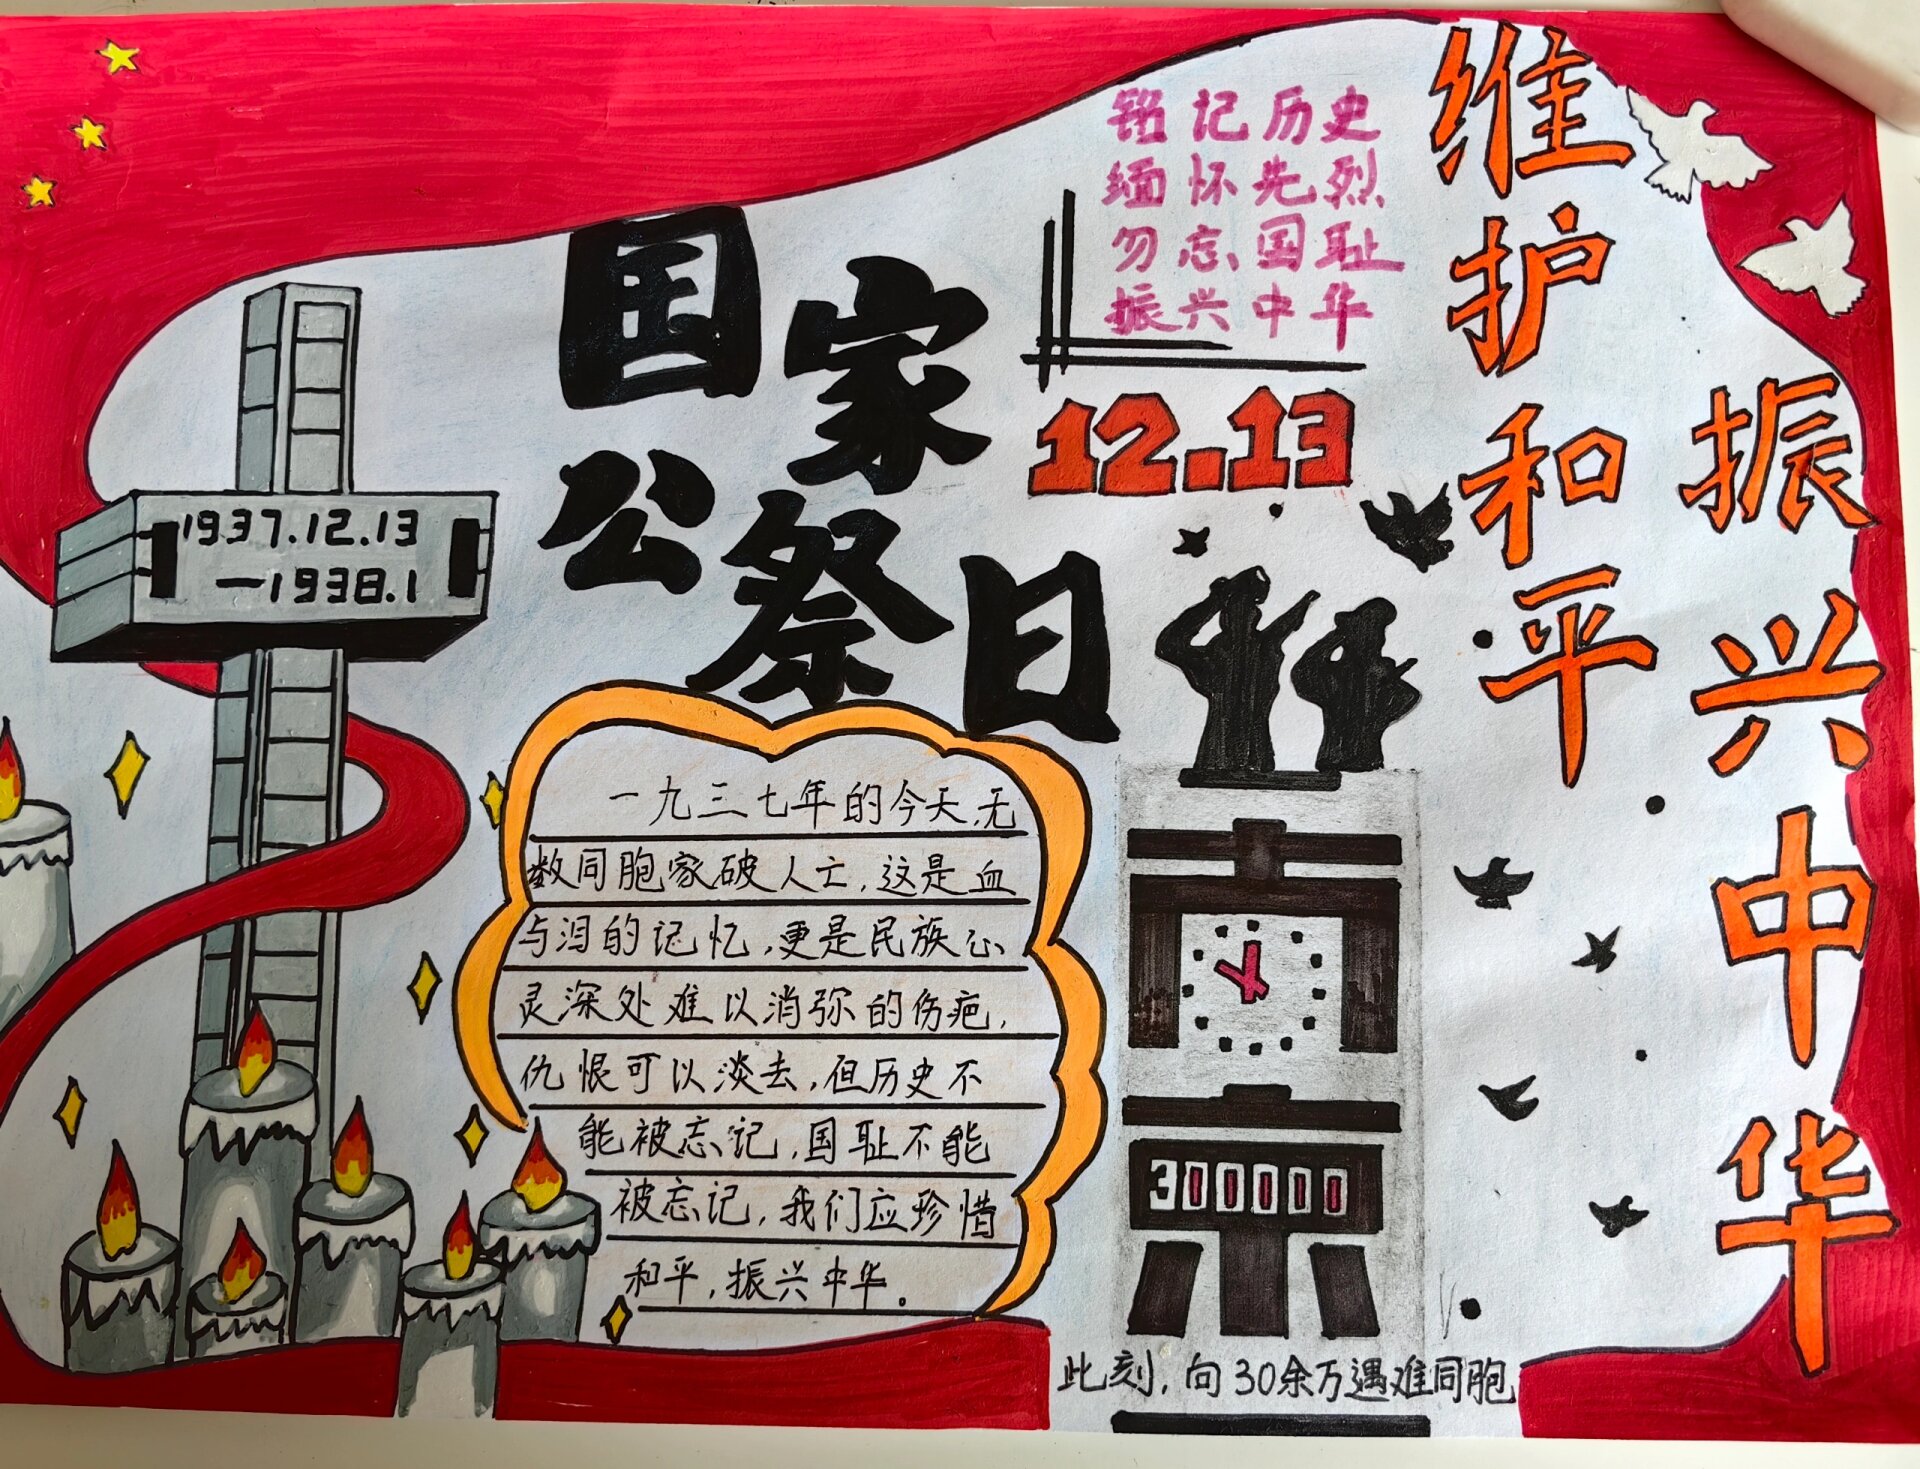 铭记历史
缅怀先烈
勿忘国耻
振兴中华
维护和平
振兴中华
国家
公祭日
12.13
1937.12.13
—1938.1
一九三七年的今天,无
数同胞家破人亡,这是血
与泪的记忆,更是民族心
灵深处难以消弥的伤疤,
仇恨可以淡去,但历史不
能被忘记,国耻不能
被忘记,我们应珍惜
和平,振兴中华。
南
京
300000
此刻,向30余万遇难同胞